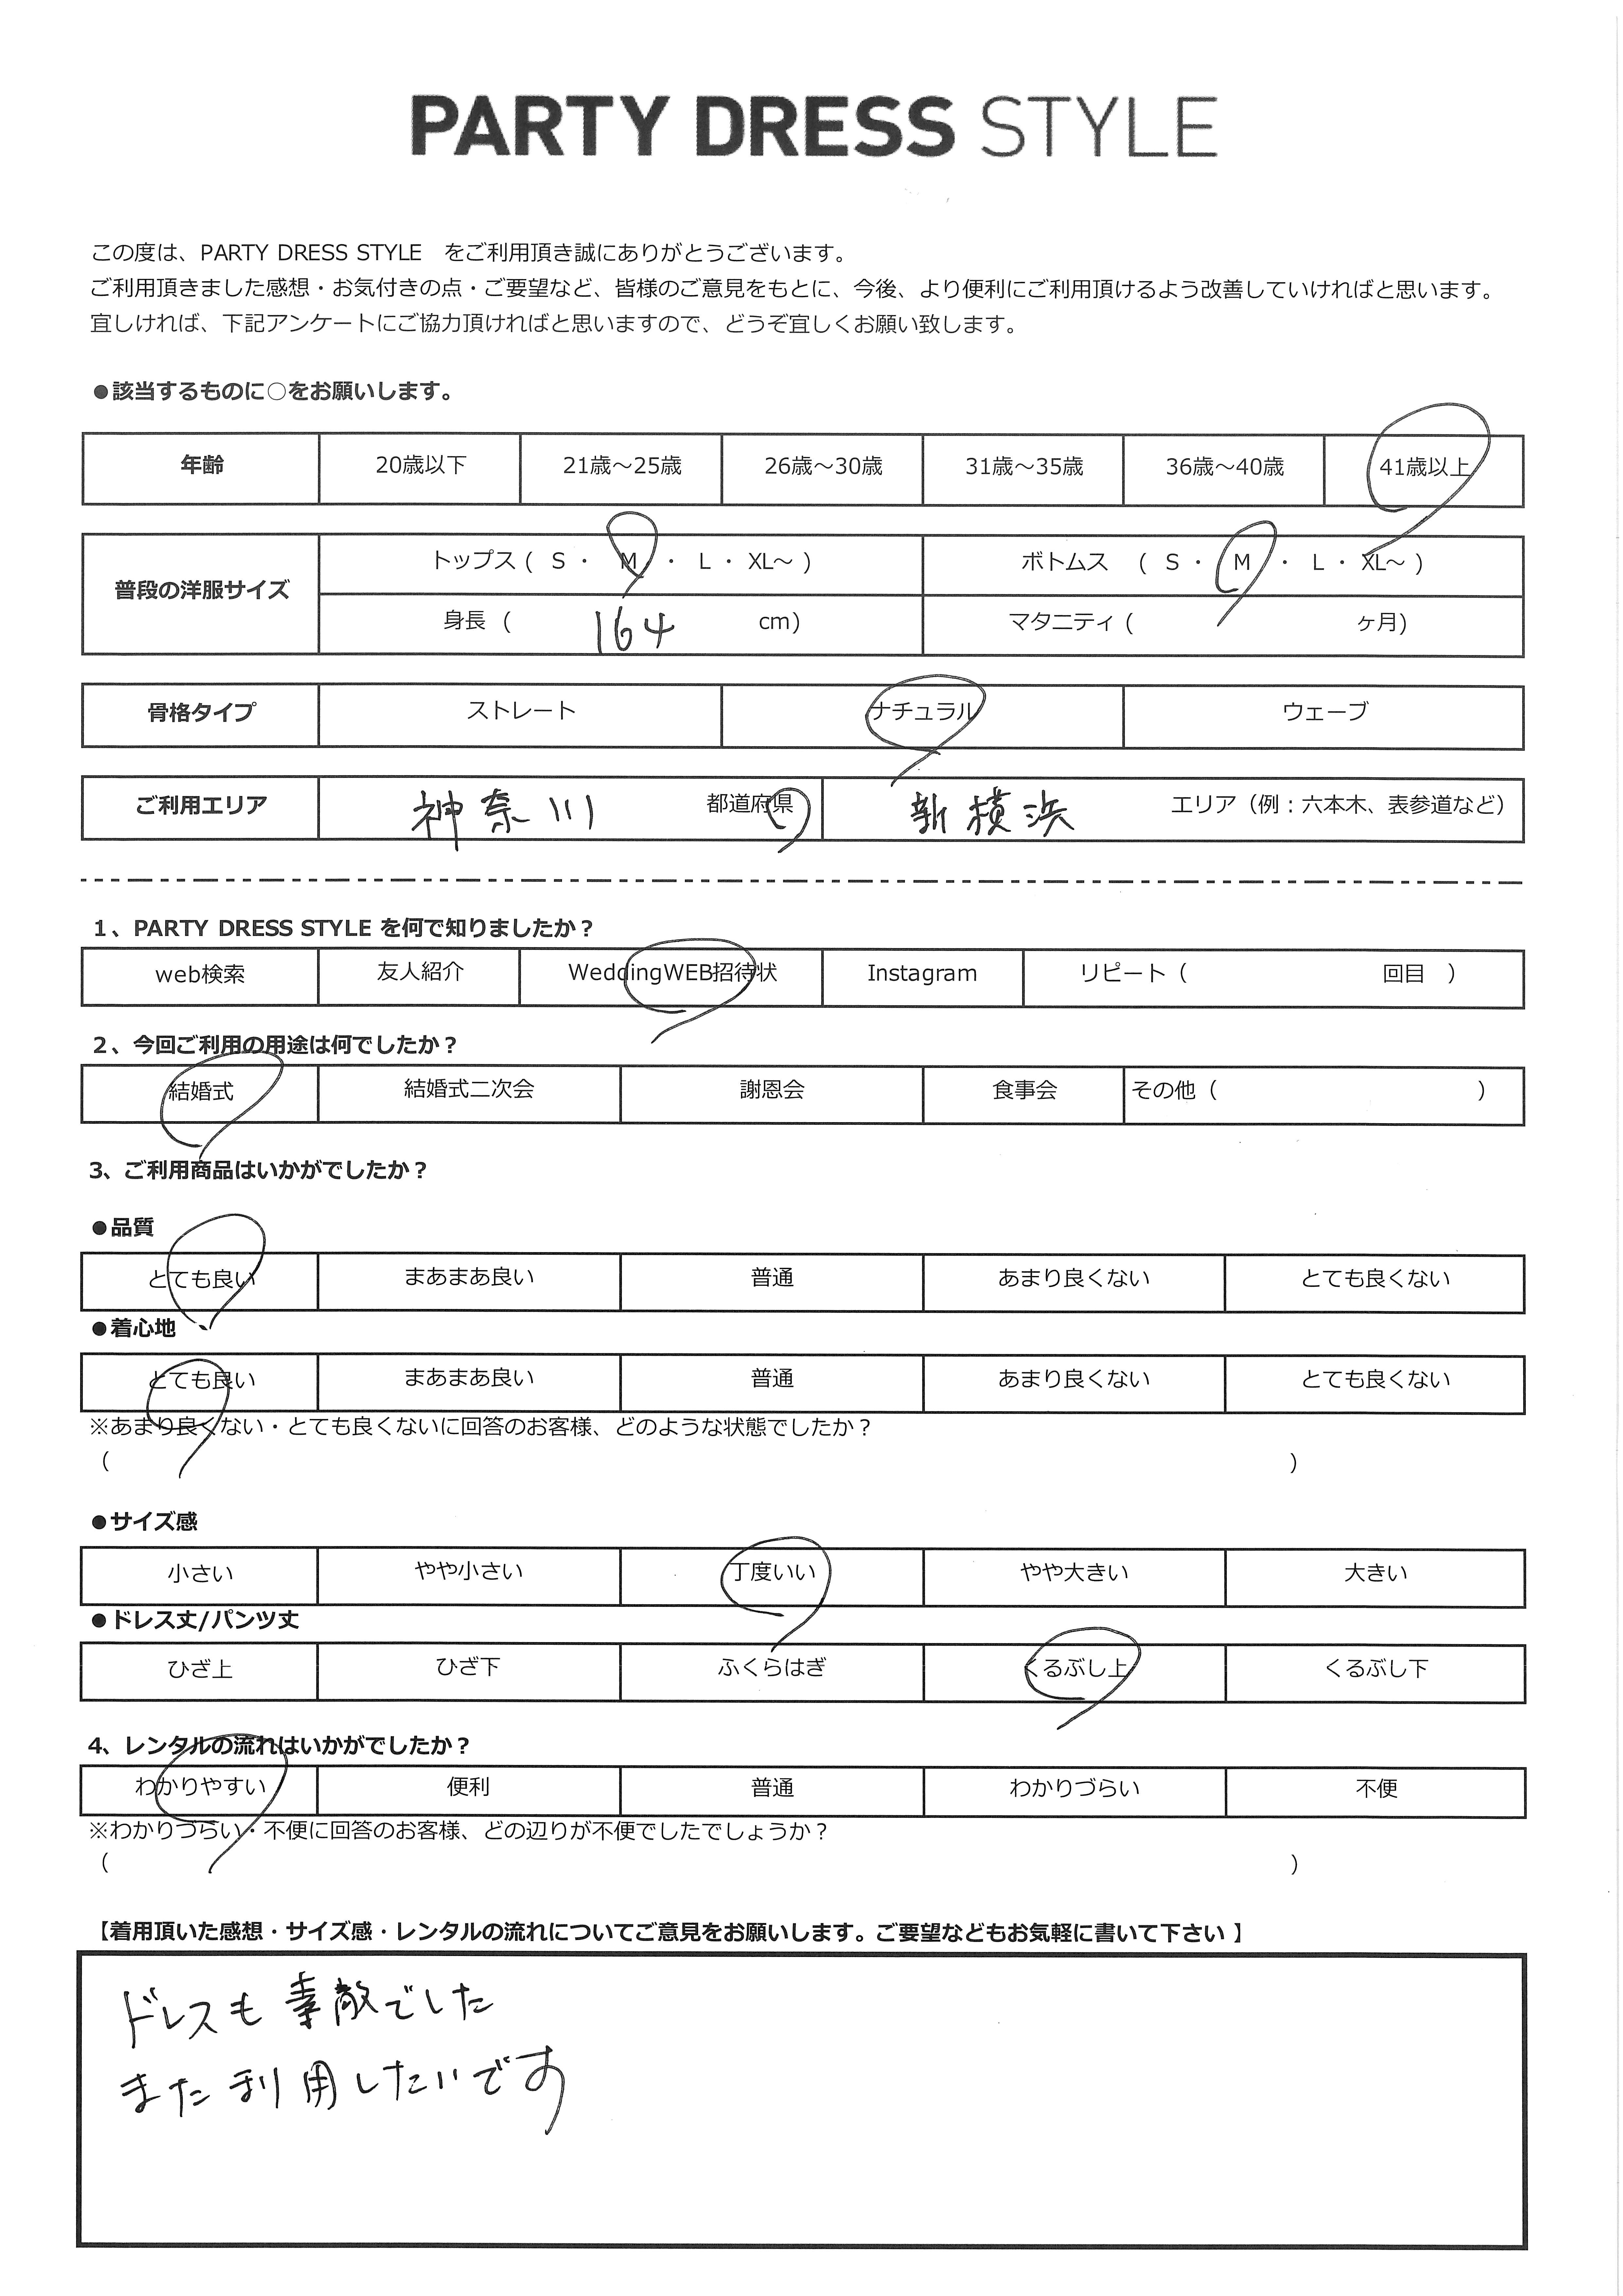 PARTY DRESS STYLE
この度は、PARTY DRESS STYLE　をご利用頂き誠にありがとうございます。
ご利用頂きました感想・お気付きの点・ご要望など、皆様のご意見をもとに、今後、より便利にご利用頂けるよう改善していければと思います。
宜しければ、下記アンケートにご協力頂ければと思いますので、どうぞ宜しくお願い致します。
●該当するものに○をお願いします。
年齢 20歳以下 21歳～25歳 26歳～30歳 31歳～35歳 36歳～40歳 41歳以上
普段の洋服サイズ トップス ( S ・ M ・ L ・ XL～ ) ボトムス ( S ・ M ・ L ・ XL～ )
身長 ( 164 cm) マタニティ ( ヶ月)
骨格タイプ ストレート ナチュラル ウェーブ
ご利用エリア 神奈川 都道府県 新横浜 エリア（例：六本木、表参道など）
1、PARTY DRESS STYLE を何で知りましたか？
web検索 友人紹介 WeddingWEB招待状 Instagram リピート（ 回目 ）
2、今回ご利用の用途は何でしたか？
結婚式 結婚式二次会 謝恩会 食事会 その他（ ）
3、ご利用商品はいかがでしたか？
●品質
とても良い まあまあ良い 普通 あまり良くない とても良くない
●着心地
とても良い まあまあ良い 普通 あまり良くない とても良くない
※あまり良くない・とても良くないに回答のお客様、どのような状態でしたか？
（ ）
●サイズ感
小さい やや小さい 丁度いい やや大きい 大きい
●ドレス丈/パンツ丈
ひざ上 ひざ下 ふくらはぎ くるぶし上 くるぶし下
4、レンタルの流れはいかがでしたか？
わかりやすい 便利 普通 わかりづらい 不便
※わかりづらい・不便に回答のお客様、どの辺りが不便でしたでしょうか？
（ ）
【着用頂いた感想・サイズ感・レンタルの流れについてご意見をお願いします。ご要望などもお気軽に書いて下さい 】
ドレスも素敵でした
また利用したいです